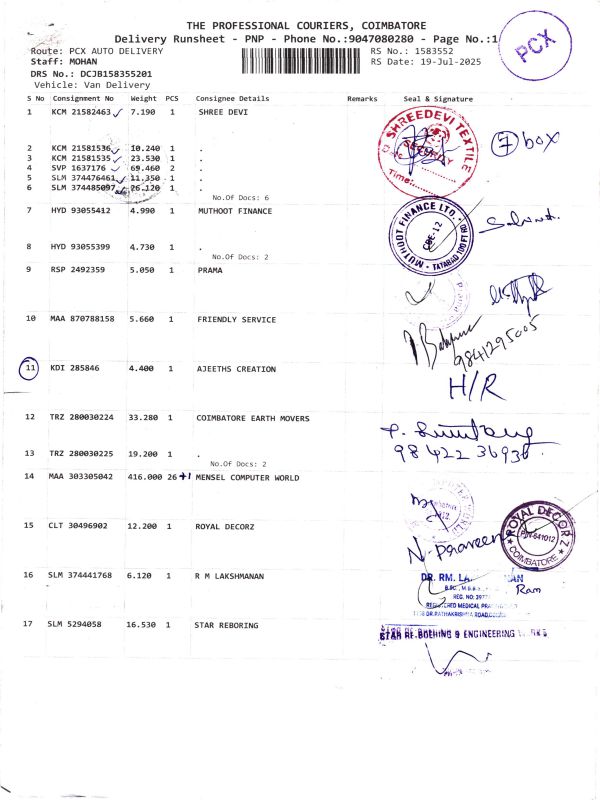 THE PROFESSIONAL COURIERS, COIMBATORE
Delivery Runsheet - PNP - Phone No.:9047080280 - Page No.:1
PCX
Route: PCX AUTO DELIVERY
RS No.: 1583552
Staff: MOHAN
RS Date: 19-Jul-2025
DRS No.: DCJB158355201
Vehicle: Van Delivery
S No Consignment No Weight PCS Consignee Details Remarks Seal & Signature
1 KCM 21582463 7.190 1 SHREE DEVI
SHREEDEVI TEXTILE
SECURITY
Time:
7 box
2 KCM 21581536 10.240 1 .
3 KCM 21581535 23.530 1 .
4 SVP 1637176 69.460 2 .
5 SLM 374476461 11.350 1 .
6 SLM 374485097 26.120 1 .
No.Of Docs: 6
7 HYD 93055412 4.990 1 MUTHOOT FINANCE
MUTHOOT FINANCE LTD.
CBE-12
8 HYD 93055399 4.730 1 .
No.Of Docs: 2
9 RSP 2492359 5.050 1 PRAMA
10 MAA 870788158 5.660 1 FRIENDLY SERVICE
9841295005
11 KDI 285846 4.400 1 AJEETHS CREATION
H/R
12 TRZ 280030224 33.280 1 COIMBATORE EARTH MOVERS
13 TRZ 280030225 19.200 1 .
No.Of Docs: 2
98422 36936
14 MAA 303305042 416.000 26 +1 MENSEL COMPUTER WORLD
15 CLT 30496902 12.200 1 ROYAL DECORZ
ROYAL DECORZ
PIN-641012
COIMBATORE
N. Praveena
16 SLM 374441768 6.120 1 R M LAKSHMANAN
DR. RM. LA
NAN
REG. NO:
REGISTERED MEDICAL
Ram
17 SLM 5294058 16.530 1 STAR REBORING
STAR RE.BOEHING & ENGINEERING